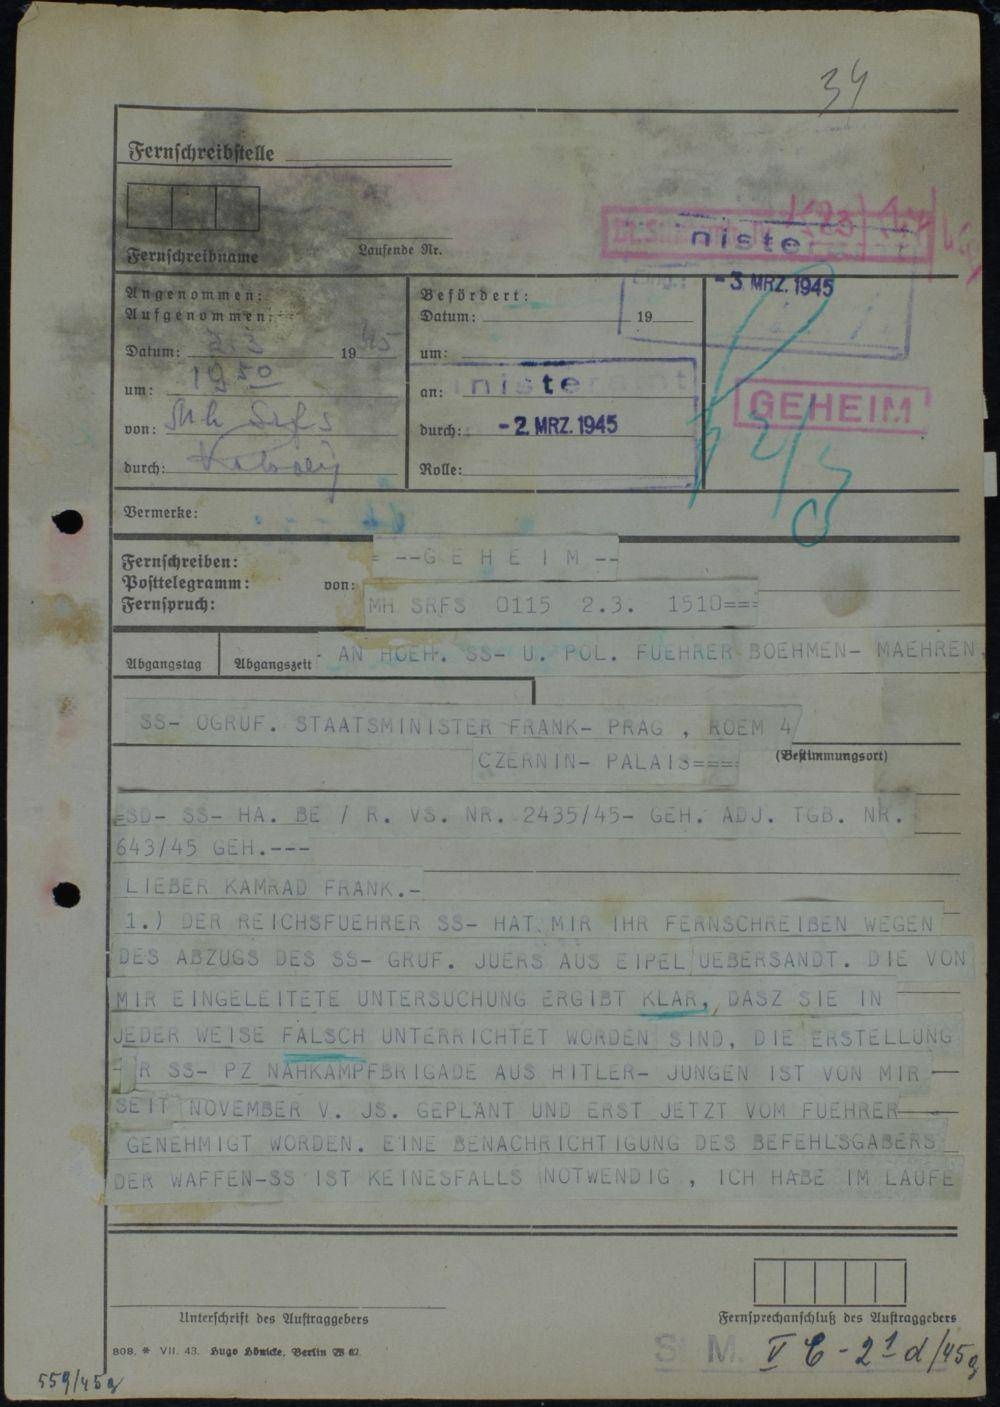 34
Fernschreibstelle
Fernschreibname
Laufende Nr.
nisteramt
- 3. MRZ. 1945
Angenommen:
Aufgenommen:
Datum: 2.3. 19 45
um: 19 50
von: Mh Srfs
durch:
Befördert:
Datum: 19
um:
an:
durch:
Rolle:
nisteramt
- 2. MRZ. 1945
GEHEIM
Vermerke:
Fernschreiben:
Posttelegramm: von:
Fernspruch:
= --G E H E I M --
MH SRFS 0115 2.3. 1510===
Abgangstag
Abgangszeit
AN HOEH. SS- U. POL. FUEHRER BOEHMEN- MAEHREN,
SS- OGRUF. STAATSMINISTER FRANK- PRAG , ROEM 4
(Bestimmungsort)
CZERNIN- PALAIS====
=SD- SS- HA. BE / R. VS. NR. 2435/45- GEH. ADJ. TGB. NR.
643/45 GEH.---
LIEBER KAMRAD FRANK.-
1.) DER REICHSFUEHRER SS- HAT MIR IHR FERNSCHREIBEN WEGEN
DES ABZUGS DES SS- GRUF. JUERS AUS EIPEL UEBERSANDT. DIE VON
MIR EINGELEITETE UNTERSUCHUNG ERGIBT KLAR, DASZ SIE IN
JEDER WEISE FALSCH UNTERRICHTET WORDEN SIND, DIE ERSTELLUNG
R SS- PZ NAHKAMPFBRIGADE AUS HITLER- JUNGEN IST VON MIR
SEIT NOVEMBER V. JS. GEPLANT UND ERST JETZT VOM FUEHRER
GENEHMIGT WORDEN. EINE BENACHRICHTIGUNG DES BEFEHLSGABERS
DER WAFFEN-SS IST KEINESFALLS NOTWENDIG , ICH HABE IM LAUFE
Unterschrift des Auftraggebers
Fernsprechanschluß des Auftraggebers
808. * VII. 43. Hugo Hönicke, Berlin W 62.
S. M. V C - 2¹ d/45g
559/45g